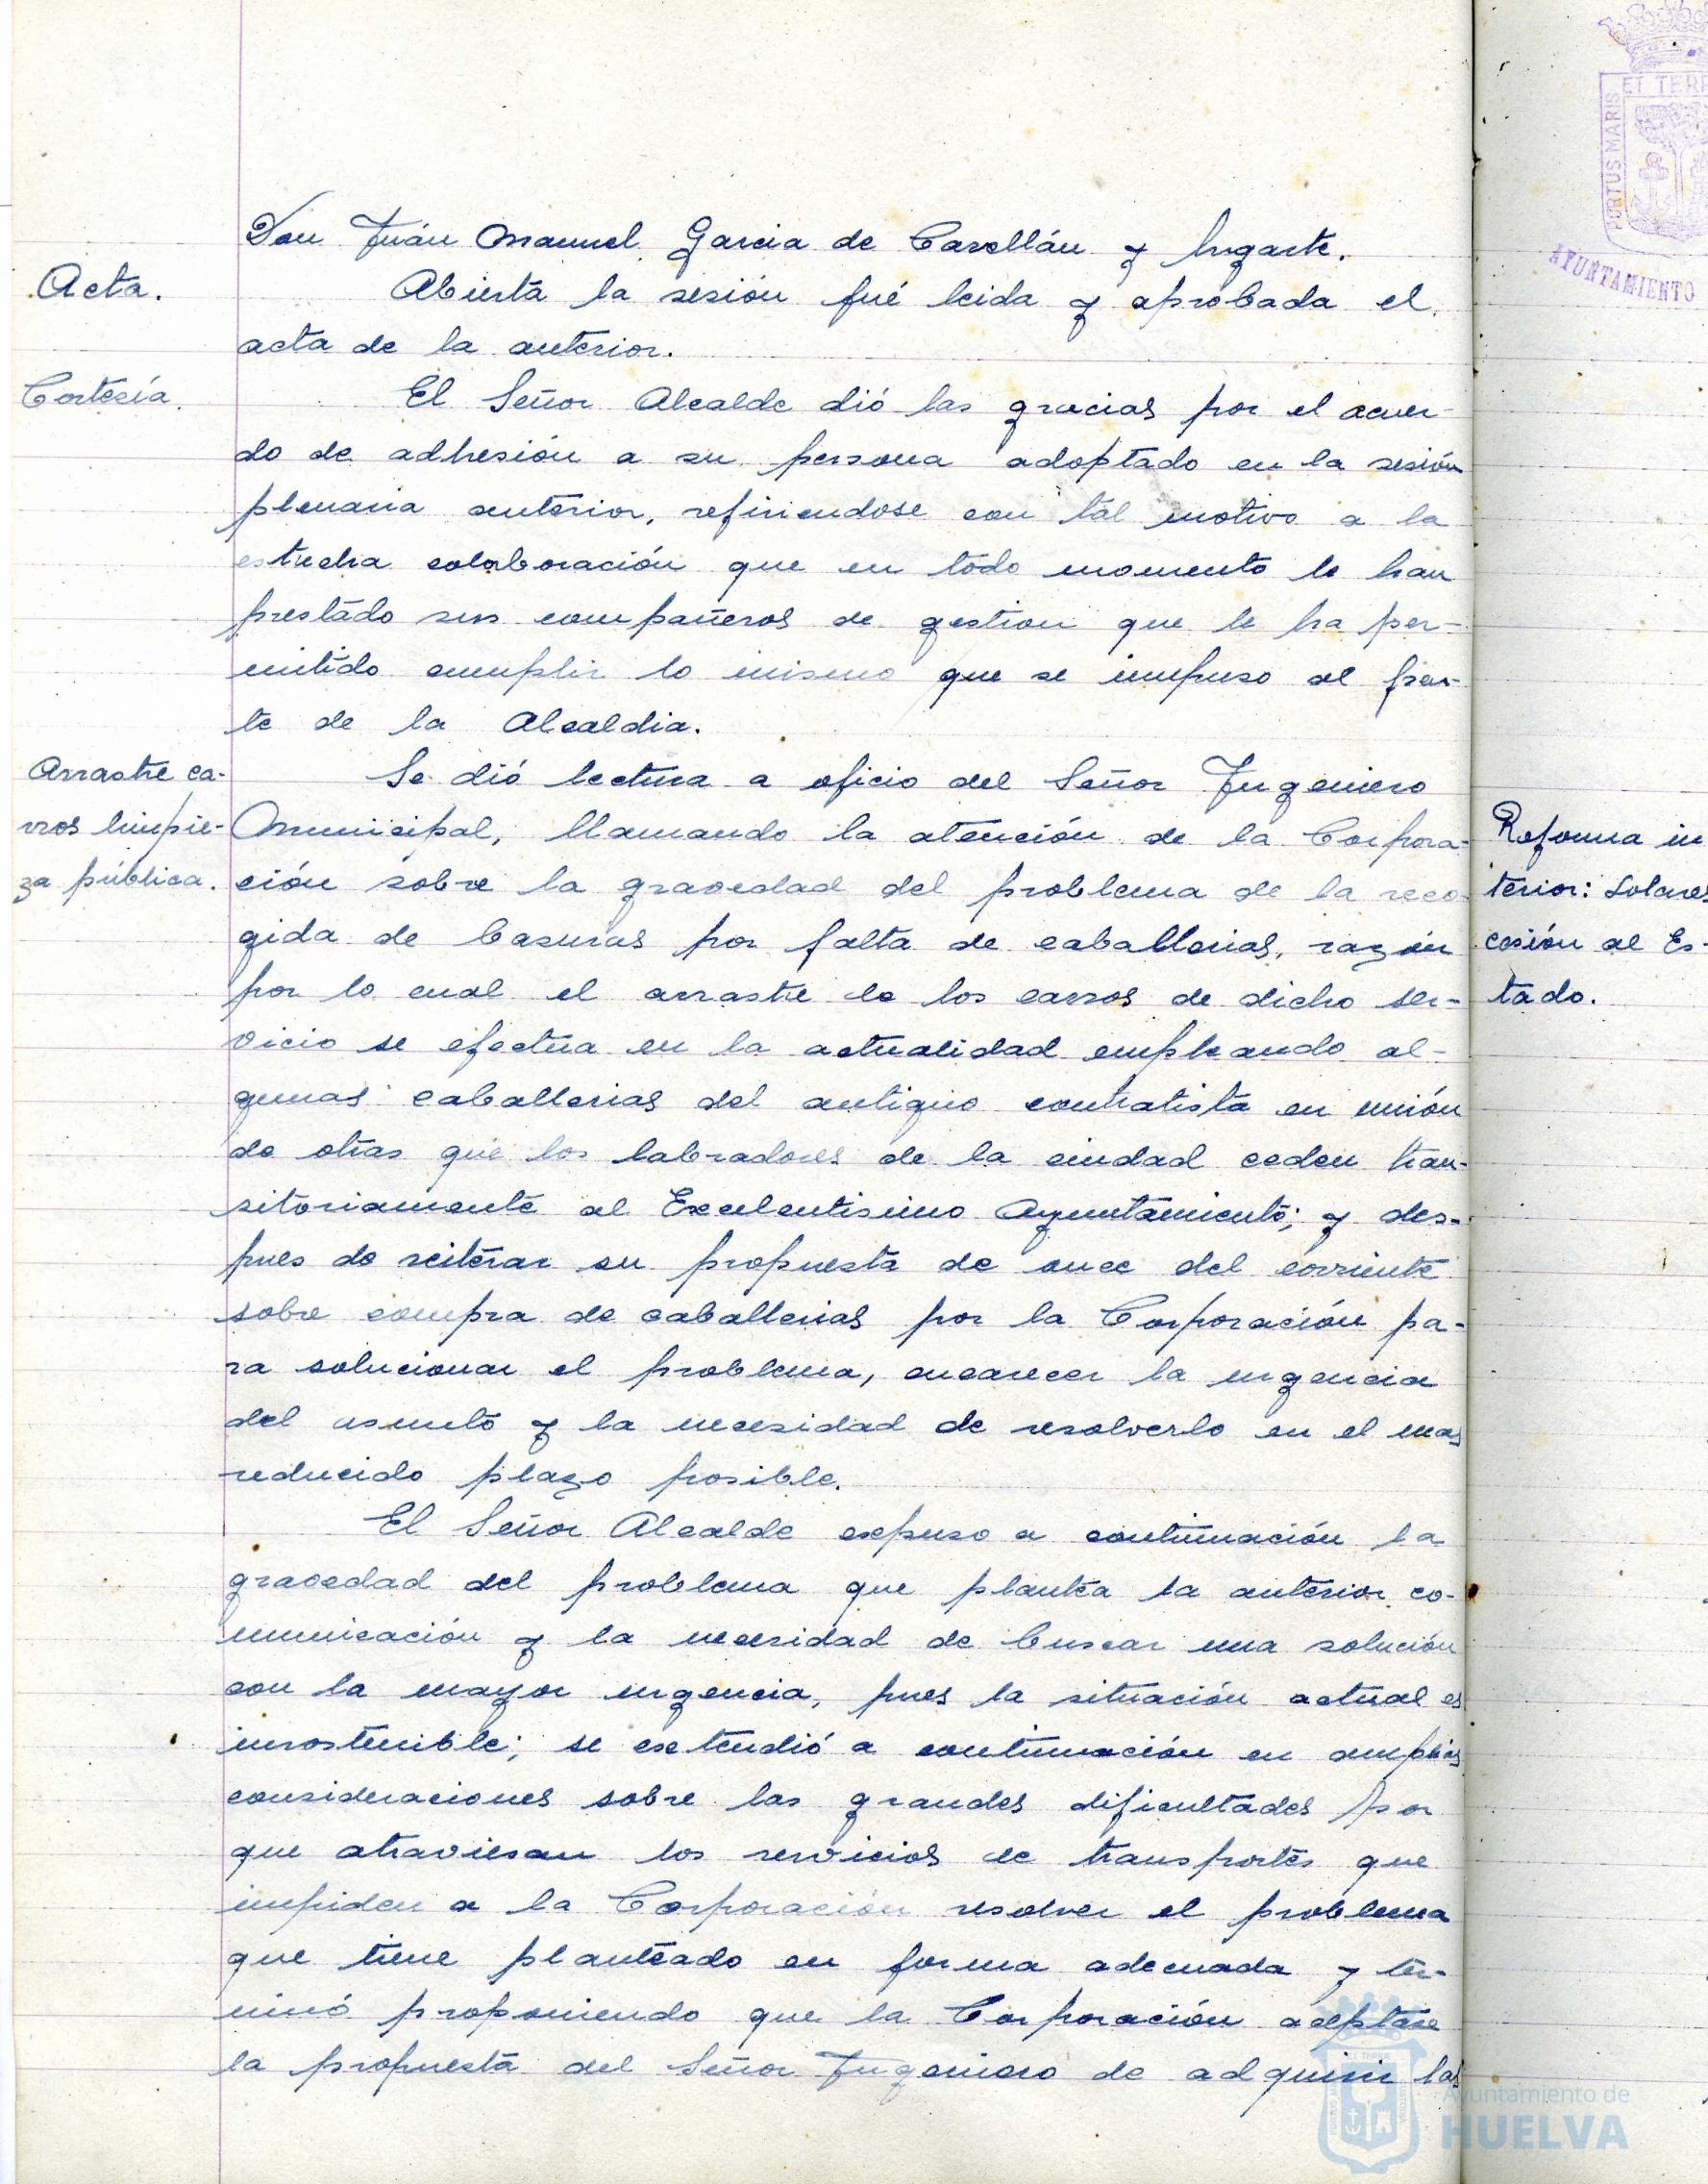 Don Juán Manuel García de Casellán y Lugarte.
Acta.
Abierta la sesión fué leida y aprobada el
acta de la anterior.
Cortesía.
El Señor Alcalde dió las gracias por el acuer-
do de adhesión a su persona adoptado en la sesión
plenaria anterior, refiriendose con tal motivo a la
estrecha colaboración que en todo momento le han
prestado sus compañeros de gestion que le ha per-
mitido cumplir lo mismo que se impuso al fren-
te de la Alcaldia.
Arrastre ca-
rros limpie-
za pública.
Se dió lectura a oficio del Señor Ingeniero
Municipal, llamando la atención de la Corpora-
ción sobre la gravedad del problema de la reco-
gida de basuras por falta de caballerias, razón
por lo cual el arrastre de los carros de dicho ser-
vicio se efectua en la actualidad empleando al-
gunas caballerias del antiguo contratista en unión
de otras que los labradores de la ciudad ceden tran-
sitoriamente al Excelentisimo Ayuntamiento; y des-
pues de reiterar su propuesta de once del corriente
sobre compra de caballerias por la Corporación pa-
ra solucionar el problema, encarecer la urgencia
del asunto y la necesidad de resolverlo en el mas
reducido plazo posible.
El Señor Alcalde expuso a continuación la
gravedad del problema que plantea la anterior co-
municación y la necesidad de buscar una solución
con la mayor urgencia, pues la situación actual es
insostenible; se extendió a continuación en amplias
consideraciones sobre las grandes dificultades por
que atraviesan los servicios de transportes que
impiden a la Corporación resolver el problema
que tiene planteado en forma adecuada y ter-
minó proponiendo que la Corporación aceptase
la propuesta del Señor Ingeniero de adquirir las
PORTUS MARIS
ET TERR
AYUNTAMIENTO
Reforma in
terior: Solares
cesión al Es-
tado.
Ayuntamiento de
HUELVA